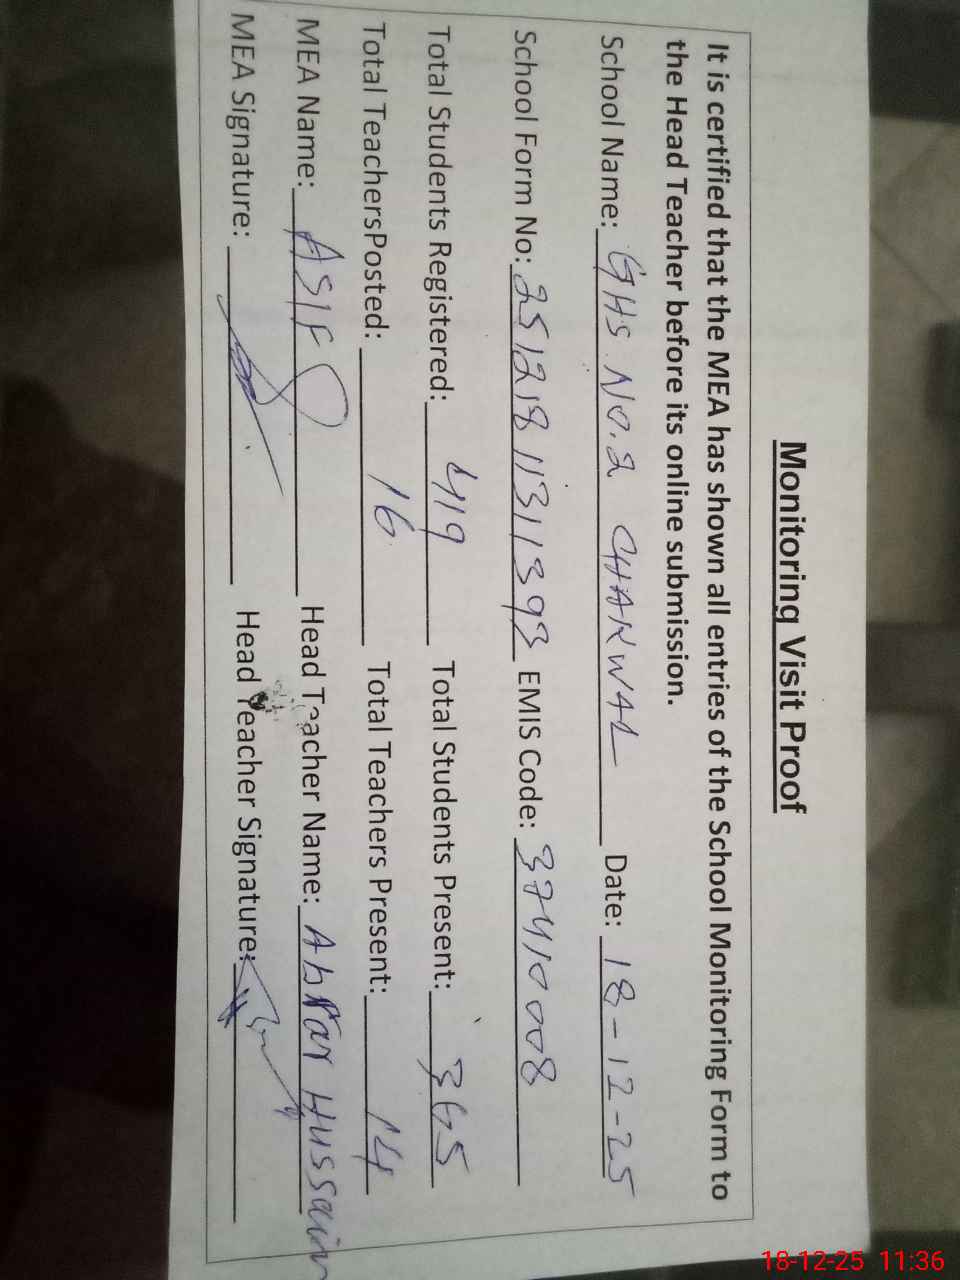 Monitoring Visit Proof
It is certified that the MEA has shown all entries of the School Monitoring Form to
the Head Teacher before its online submission.
School Name: GHS No.2 CHAKWAL Date: 18-12-25
School Form No: 25121811311393 EMIS Code: 37410008
Total Students Registered: 419 Total Students Present: 365
Total TeachersPosted: 16 Total Teachers Present: 14
MEA Name: ASIF Head Teacher Name: Abrar Hussain
MEA Signature: Head Teacher Signature:
18-12-25 11:36